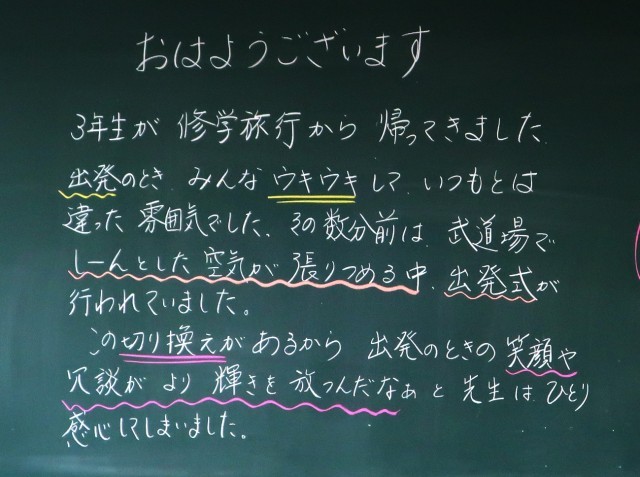 おはようございます
3年生が 修学旅行から 帰ってきました.
出発のとき、みんな ウキウキして、いつもとは
違った 雰囲気でした、その数分前は、武道場で
しーんとした 空気が 張りつめる中、出発式が
行われていました。
この切り換えが あるから 出発のときの 笑顔や
冗談が より 輝きを 放つんだなぁ と 先生は ひとり
感心してしまいました。